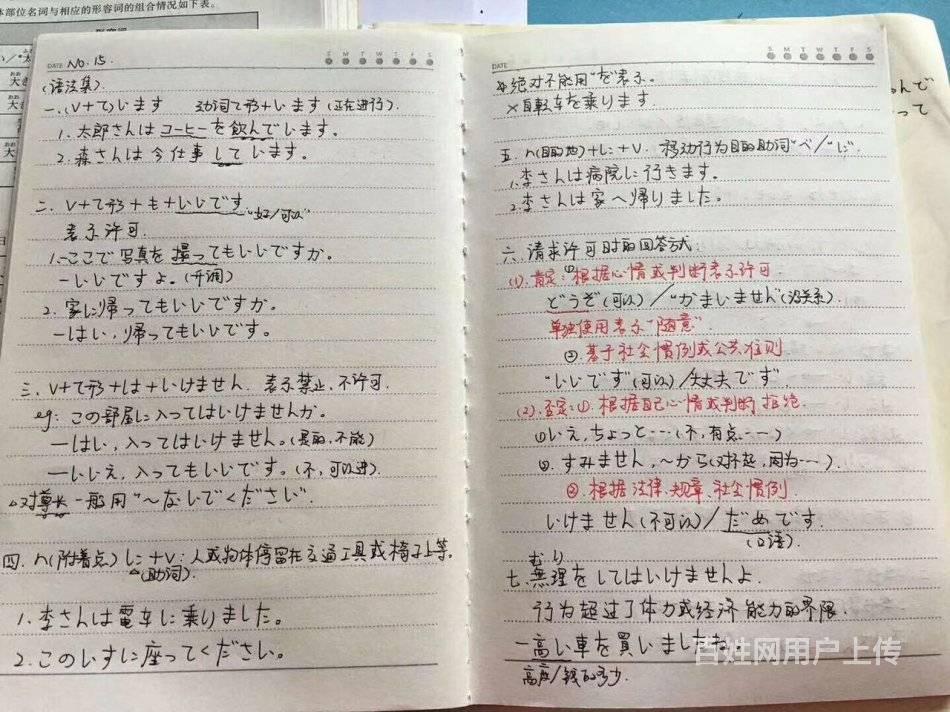 本部位名词与相应的形容词的组合情况如下表。
DATE No. 15.
S M T W T F S
(语法集).
一.(V+て)います 动词て形+います(正在进行).
1. 太郎さんはコーヒーを飲んでいます。
2. 森さんは今仕事しています。
二. V+て形+も+いいです.
"好/可以"
表示许可.
1.ここで写真を撮ってもいいですか.
—いいですよ。(升调)
2. 家に帰ってもいいですか.
—はい,帰ってもいいです。
三. V+て形+は+いけません. 表示禁止,不许可.
eg: この部屋に入ってはいけませんか.
—はい,入ってはいけません。(是的,不能)
—いいえ,入ってもいいです。(不,可以进).
△对尊长一般用"~ないでください".
四. n(附着点)に+V:人或物体停留在交通工具或椅子上等。
△(助词).
1. 李さんは電車に乗りました。
2. このいすに座ってください。
DATE
S M T W T F S
绝对不能用"を"表示。
×自転车を乗ります.
五. n(目的地)+に+V. 移动行为目的助词"へ"/"に".
1.李さんは病院に行きます。
2.李さんは家へ帰りました。
六.请求许可时的回答方式.
(1).肯定:①根据心情或判断表示许可.
どうぞ(可以)/"かまいません"(没关系).
单独使用表示"随意"
②基于社会惯例或公共准则
"いいです"(可以)/大丈夫です".
(2).否定:①.根据自己心情或判断拒绝.
いえ,ちょっと…(不,有点…)
すみません,~から(对不起,因为…).
②.根据法律、规章、社会惯例
いけません(不可以)/だめです.
(口语).
むり
七.無理をしてはいけませんよ.
行为超过了体力或经济能力的界限.
—高い車を買いましたね
高度/钱的多少.
百姓网用户上传